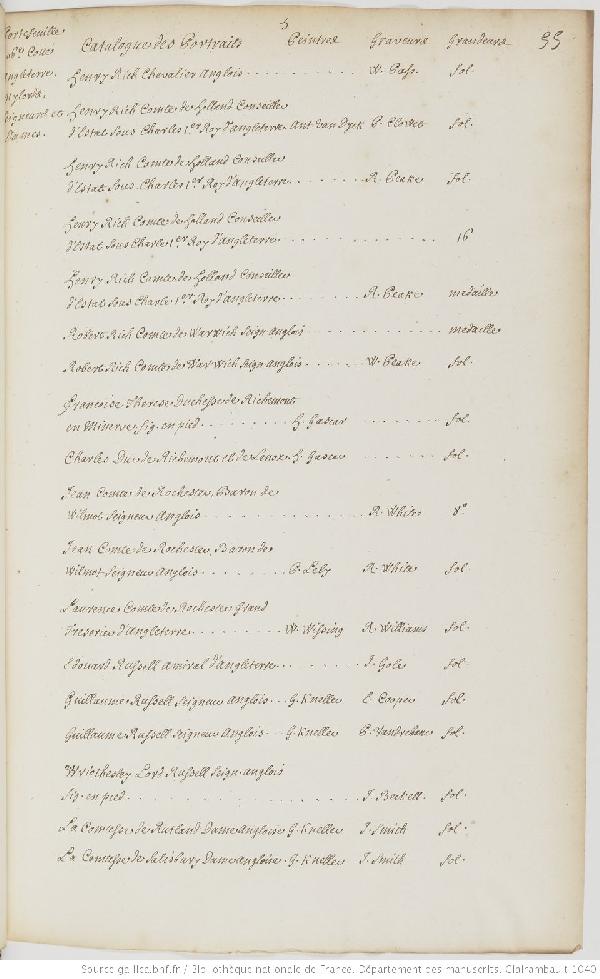 5
55
Portefeuille
Angleterre.
Mylords.
Seigneurs et
Dames.
Catalogue des Portraits Peintre Graveurs Grandeurs
Henry Rich Chevalier Anglois W. Pass. fol.
Henry Rich Comte de Holland Conseille
d'Estat sous Charles 1.er Roy d'Angleterre Ant Van Dyck P. Clovet fol.
Henry Rich Comte de Holland Conseille
d'Estat sous Charles 1.er Roy d'Angleterre R. Peake fol.
Henry Rich Comte de Holland Conseille
d'Estat sous Charle 1.er Roy d'Angleterre 16
Henry Rich Comte de Holland Conseille
d'Estat sous Charle 1.er Roy d'Angleterre R. Peake medaille
Robert Rich Comte de Warwich Seign Anglois medaille
Robert Rich Comte de Warwich Seign Anglois W. Peake fol.
Françoise Therese Duchesse de Richemont
en Minerve fig. en pied H. Gascar fol.
Charles Duc de Richemont et de Lenox H. Gascar fol.
Jean Comte de Rochester Baron de
Wilmot Seigneur Anglois R. White 8°
Jean Comte de Rochester Baron de
Wilmot Seigneur Anglois P. Lely R. White fol.
Laurence Comte de Rochester Grand
Tresorier d'Angleterre W. Wissing R. Williams fol.
Edouard Russell Amiral d'Angleterre J. Gole fol.
Guillaume Russell Seigneur Anglois G. Kneller E. Cooper fol.
Guillaume Russell Seigneur Anglois G. Kneller P. Vandrebanc fol.
Wriothesley Lord Russell Seign. anglois
fig. en pied fol.
La Comtesse de Rutland Dame Angloise G. Kneller J. Smith fol.
La Comtesse de Salesbury Dame Angloise G. Kneller J. Smith fol.
Source gallica.bnf.fr / Bibliothèque nationale de France. Département des manuscrits. Clairambault 1040